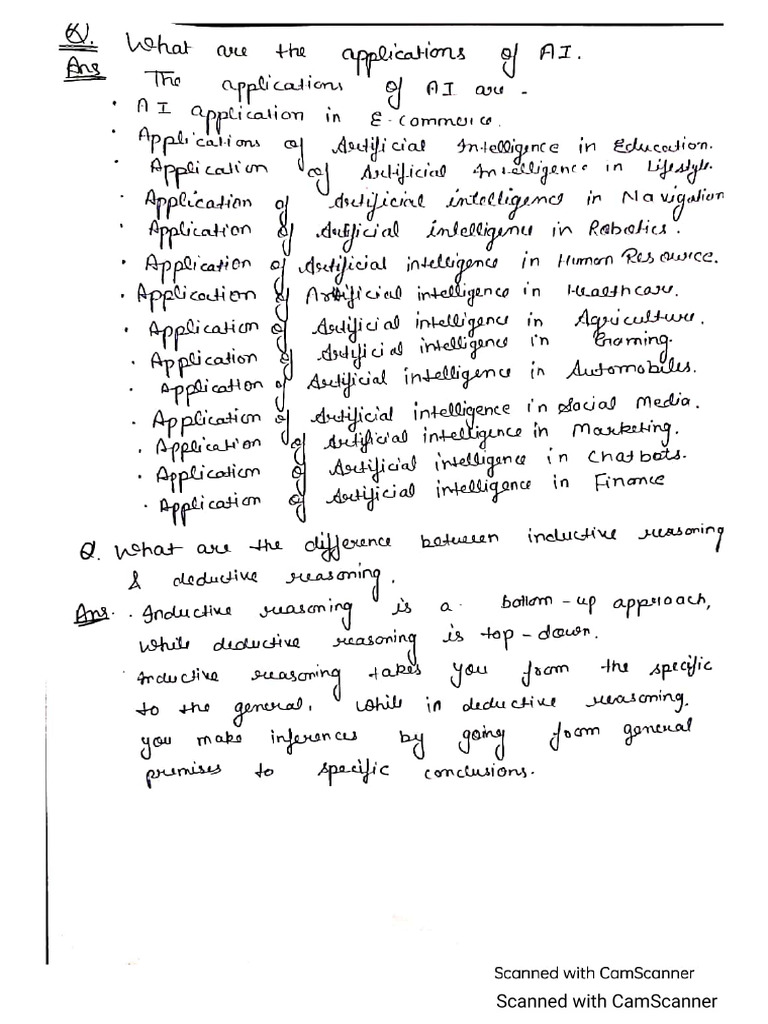 Q. What are the applications of AI.
Ans The applications of AI are -
· AI application in E-commerce.
· Applications of Artificial Intelligence in Education.
· Application of Artificial Intelligence in Lifestyle.
· Application of Artificial intelligence in Navigation
· Application of Artificial intelligence in Robotics.
· Application of Artificial intelligence in Human Resource.
· Application of Artificial intelligence in Healthcare.
· Application of Artificial intelligence in Agriculture.
· Application of Artificial intelligence in Gaming.
· Application of Artificial intelligence in Automobiles.
· Application of Artificial intelligence in Social Media.
· Application of Artificial intelligence in Marketing.
· Application of Artificial intelligence in Chatbots.
· Application of Artificial intelligence in Finance
Q. What are the difference between inductive reasoning
& deductive reasoning.
Ans. · Inductive reasoning is a bottom-up approach,
while deductive reasoning is top-down.
· Inductive reasoning takes you from the specific
to the general, while in deductive reasoning,
you make inferences by going from general
premises to specific conclusions.
Scanned with CamScanner
Scanned with CamScanner